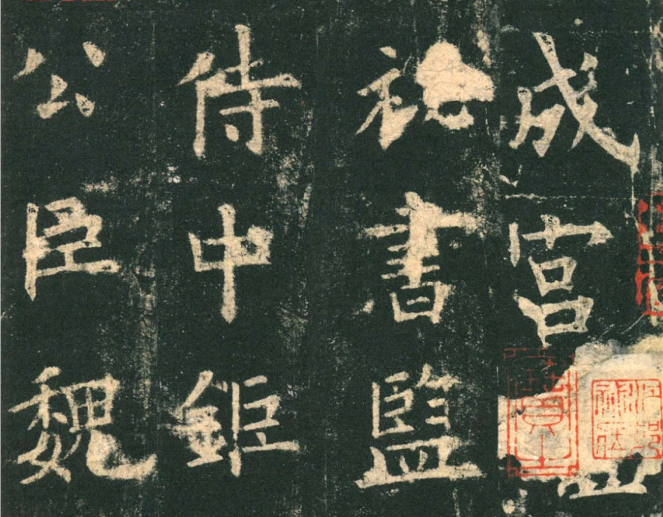 成宮
書監
侍中鉅
公臣魏